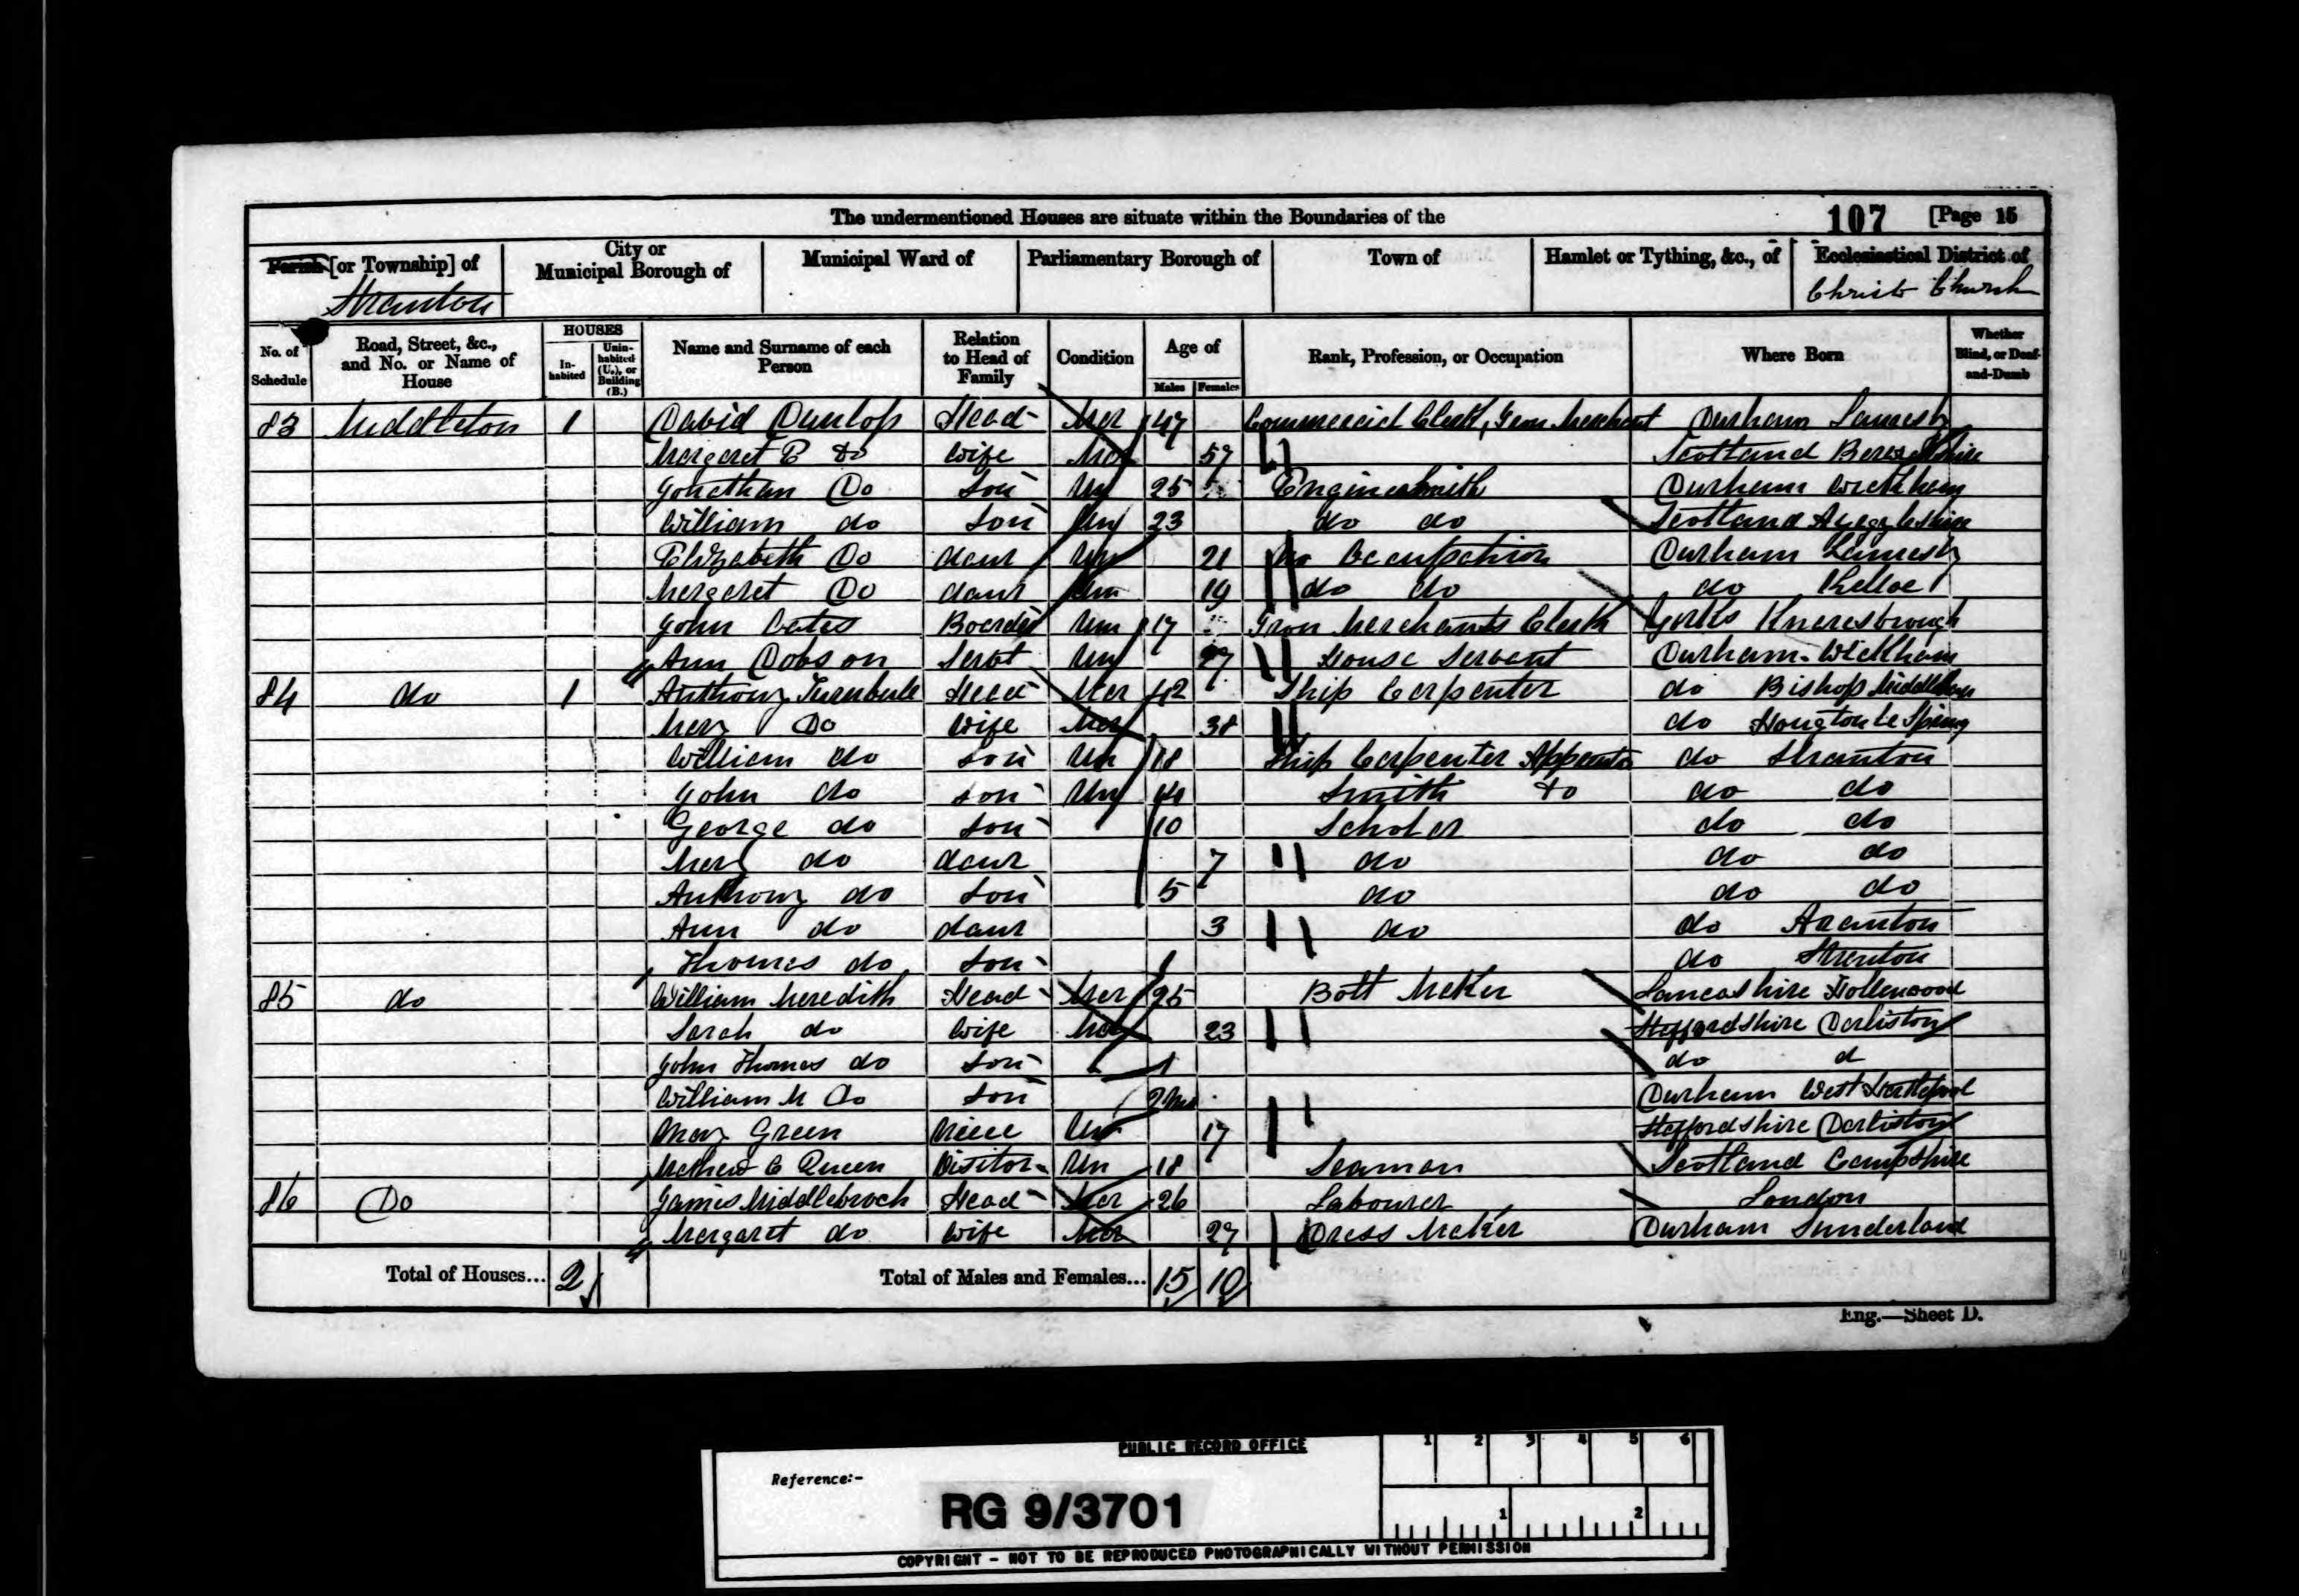 The undermentioned Houses are situate within the Boundaries of the 107 [Page 15
Parish [or Township] of City or Municipal Borough of Municipal Ward of Parliamentary Borough of Town of Hamlet or Tything, &c., of Ecclesiastical District of
Stranton Christ Church
No. of Schedule Road, Street, &c., and No. or Name of House HOUSES Inhabited Uninhabited (U.), or Building (B.) Name and Surname of each Person Relation to Head of Family Condition Age of Males Females Rank, Profession, or Occupation Where Born Whether Blind, or Deaf-and-Dumb
83 Middleton 1 David Dunlop Head Mar 47 Commercial Clerk, Iron Merchant Durham Lamesly
Margaret E do Wife Mar 57 Scotland
Jonathan Do Son Un 25 Engine Smith Durham Wickham
William do Son Un 23 do do Scotland
Elizabeth Do daur Un 21 No Occupation Durham Lamesly
Margaret Do daur Un 19 do do do Kelloe
John Oates Boarder Un 17 Iron Merchants Clerk Yorks Knaresbrough
Ann Dobson Servt Un 27 House Servant Durham Wickham
84 do 1 Anthony Turnbull Head Mar 42 Ship Carpenter do Bishop Middleham
Mary Do Wife Mar 38 do Hougton le Spring
William do Son Un 18 Ship Carpenter do Stranton
John do Son Un 14 Smith do do do
George do Son 10 Scholar do do
Mary do daur 7 do do do
Anthony do Son 5 do do do
Ann do daur 3 do do Stranton
Thomas do Son 1 do Stranton
85 do William Meredith Head Mar 25 Bolt Maker Lancashire Hollenwood
Sarah do Wife Mar 23 Staffordshire Darliston
John Thomas do Son 1 do d
William M Do Son 2 Mo Durham West Hartlepool
Mary Green Niece Un 17 Staffordshire Darliston
Mathew C Queen Visitor Un 18 Seaman Scotland
86 Do James Middlebrock Head Mar 26 Labourer London
Margaret do Wife Mar 27 Dress Maker Durham Sunderland
Total of Houses... 2 Total of Males and Females... 15 10
Eng.—Sheet D.
PUBLIC RECORD OFFICE 1 2 3 4 5 6
Reference:-
RG 9/3701 1 2
COPYRIGHT - NOT TO BE REPRODUCED PHOTOGRAPHICALLY WITHOUT PERMISSION